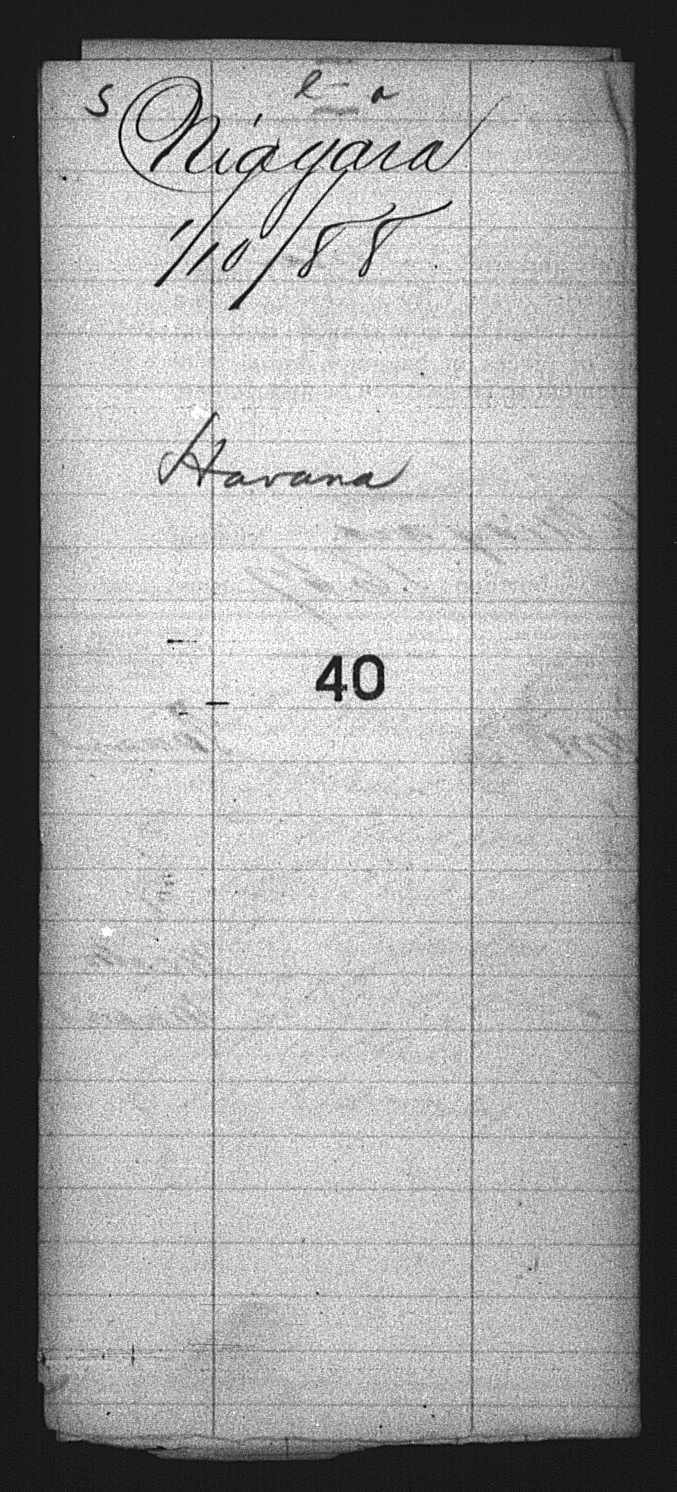 S
Niagara
1/10/88
Havana
40